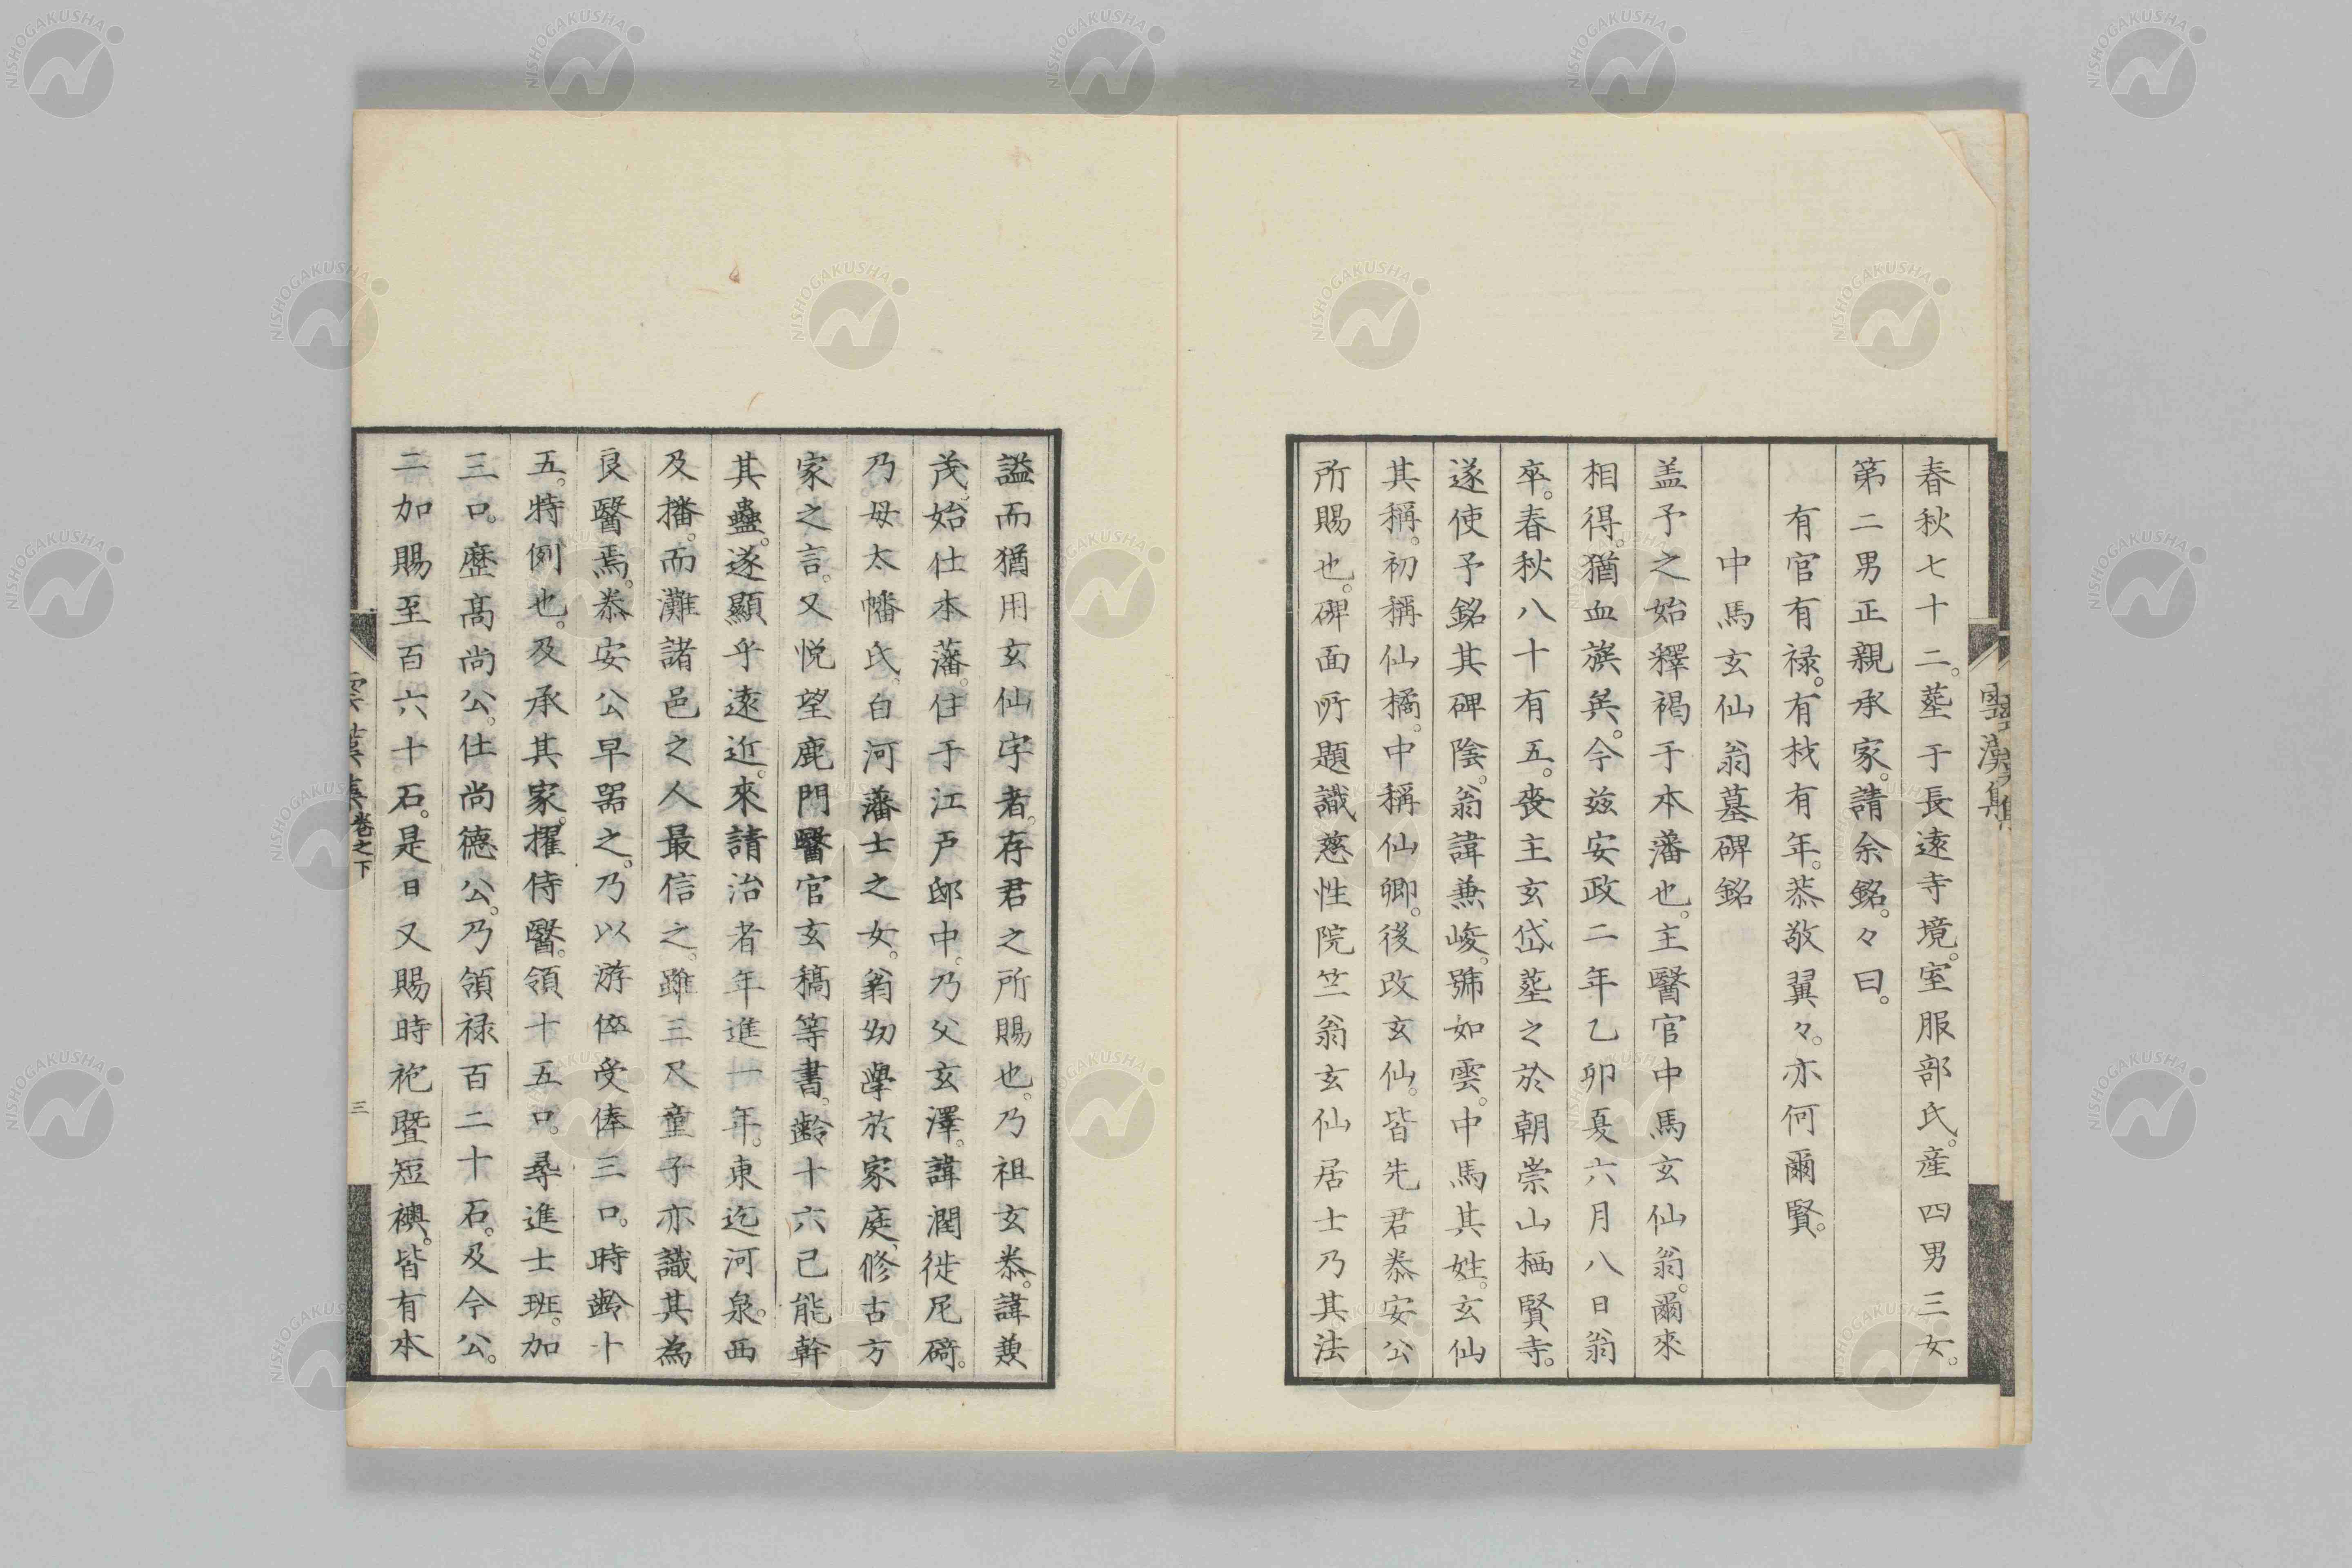 春秋七十二。葬于長遠寺境。室服部氏。産四男三女。
第二男正親承家。請余銘。々曰。
有官有禄。有材有年。恭敬翼々。亦何爾賢。
中馬玄仙翁墓碑銘
盖予之始釋褐于本藩也。主醫官中馬玄仙翁。爾來
相得。猶血族矣。今茲安政二年乙卯夏六月八日翁
卒。春秋八十有五。喪主玄岱葬之於朝崇山栖賢寺。
遂使予銘其碑陰。翁諱兼峻。號如雲。中馬其姓。玄仙
其稱。初稱仙橘。中稱仙卿。後改玄仙。皆先君恭安公
所賜也。碑面所題識慈性院竺翁玄仙居士乃其法
謚而猶用玄仙字者。存君之所賜也。乃祖玄恭。諱兼
茂。始仕本藩。住于江戸邸中。乃父玄澤。諱潤徙尼碕。
乃母太幡氏。自河藩士之女。翁幼學於家庭、修古方
家之言。又悦望鹿門醫官玄稿等書。齡十六已能幹
其蠱。遂顯乎遠近。來請治者年進一年。東迄河泉。西
及播。而灘諸邑之人最信之。雖三尺童子亦識其為
良醫焉。恭安公早器之。乃以游倅受俸三口。時齡十
五。特例也。及承其家。擢侍醫。領十五口。尋進士班。加
三口。歴髙尚公。仕尚德公。乃領禄百二十石。及今公。
二加賜至百六十石。是日又賜時袍曁短襖。皆有本
雲漢集
雲漢集 卷之下
三
NISHOGAKUSHA